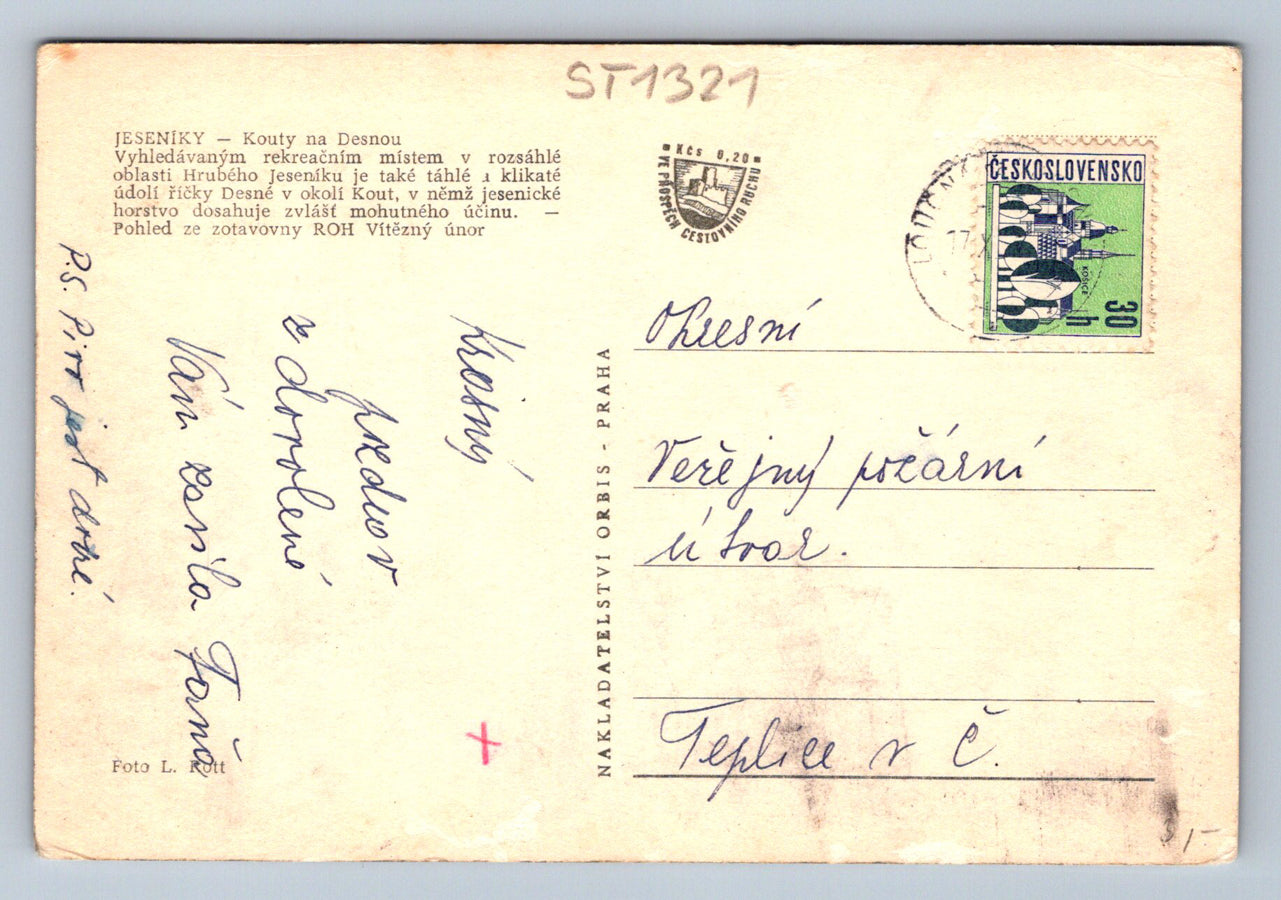 ST1321
JESENÍKY — Kouty na Desnou
Vyhledávaným rekreačním místem v rozsáhlé
oblasti Hrubého Jeseníku je také táhlé a klikaté
údolí říčky Desné v okolí Kout, v němž jesenické
horstvo dosahuje zvlášť mohutného účinu. —
Pohled ze zotavovny ROH Vítězný únor
Kčs 0,20
VE PROSPĚCH CESTOVNÍHO RUCHU
ČESKOSLOVENSKO
KOŠICE
30
h
17.X
Krásný
pozdrav
z dovolené
Vám zasílá
P.S. Pivo jest dobré.
Foto L. Rott
NAKLADATELSTVÍ ORBIS - PRAHA
Okresní
Veřejný požární
útvar.
Teplice v Č.